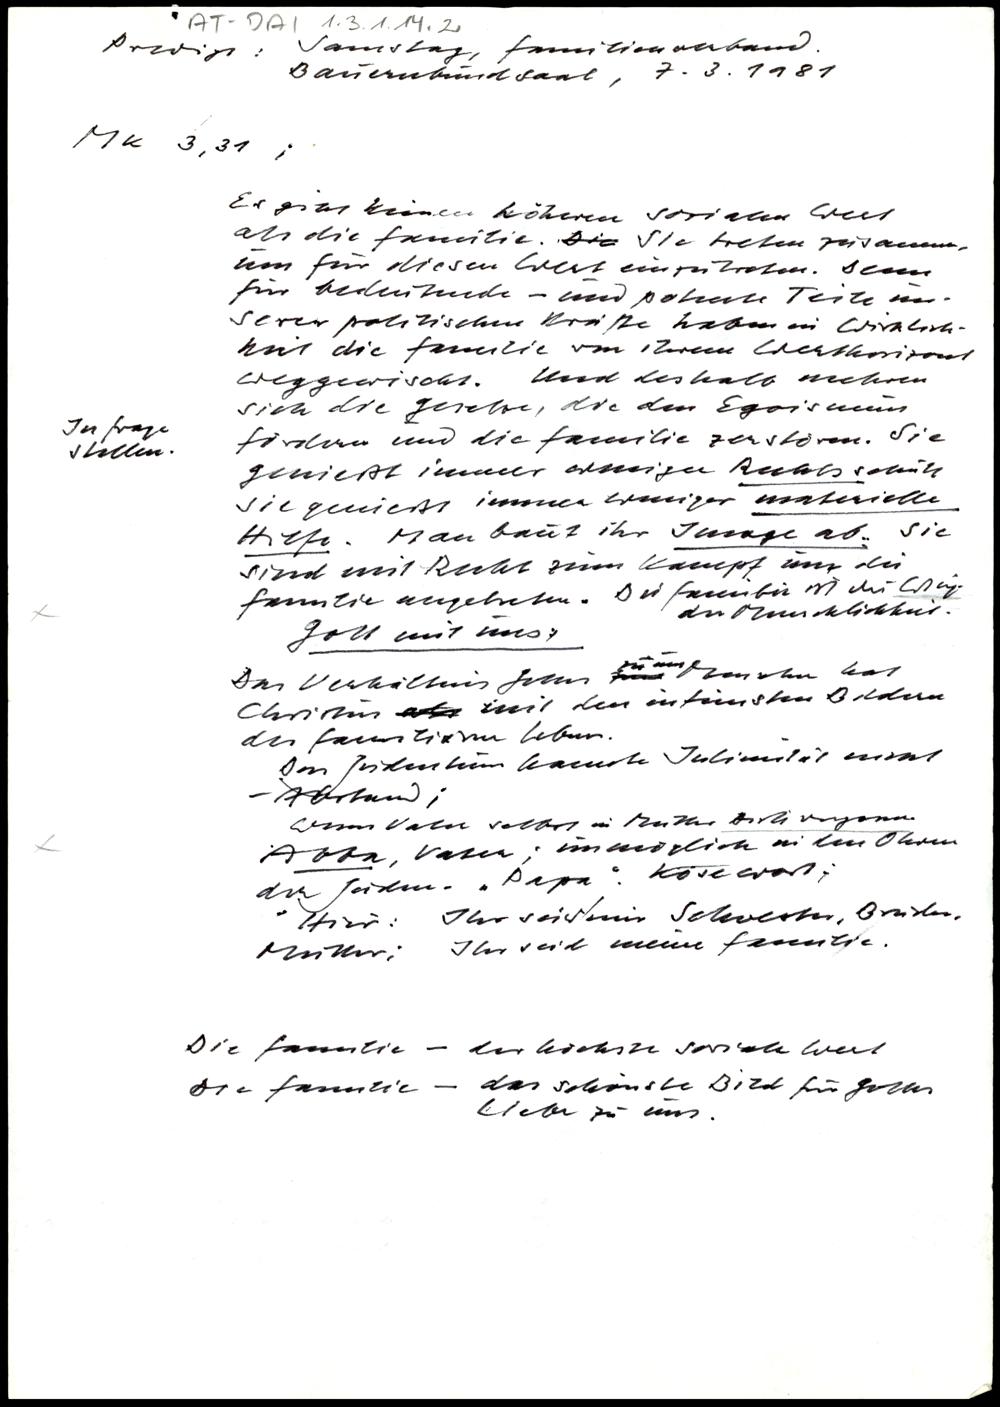 AT-DAI 1.3.1.14.2
Predigt: Samstag, Familienverband.
Bauernbundsaal, 7.3.1981
Mk 3,31 ;
Es gibt keinen höheren sozialen Wert
als die Familie. Die Sie treten zusammen,
um für diesen Wert einzutreten. Denn
für bedeutende – und potente Teile un-
serer politischen Kräfte haben in Wirklich-
keit die Familie von ihrem Werthorizont
weggewischt. Und deshalb mehren
sich die Gesetze, die den Egoismus
In Frage
stellen.
fördern und die Familie zerstören. Sie
genießt immer weniger Rechtsschutz
Sie genießt immer weniger materielle
Hilfe. Man baut ihr Image ab. Sie
sind mit Recht zum Kampf um die
Familie angetreten. Die Familie ist die Wiege
der Menschlichkeit.
Gott mit uns:
Das Verhältnis Gottes zu uns Menschen hat
Christus als mit den intimsten Bildern
des familiären Lebens.
Das Judentum kannte Intimität nicht
– Abstand;
wenn Vater selbst in Mutter
Abba, Vater; unmöglich in den Ohren
der Juden. „Papa“. Kosewort;
Hier: Ihr seid mir Schwester, Bruder,
Mutter; Ihr seid meine Familie.
Die Familie – der höchste soziale Wert
Die Familie – das schönste Bild für Gottes
Liebe zu uns.